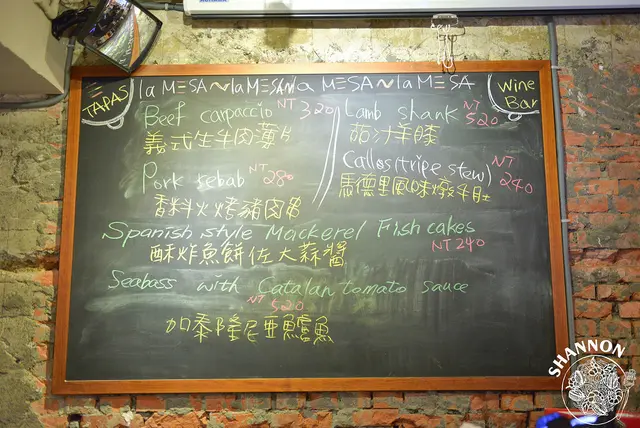 la MESA la MESA la MESA la MESA
TAPAS
Wine Bar
Beef carpaccio NT 320
義式生牛肉薄片
Pork kebab NT 280
香料火烤豬肉串
Lamb shank NT 520
茄汁羊膝
Callos (tripe stew) NT 240
馬德里風味燉牛肚
Spanish style Mackerel Fish cakes
NT 240
酥炸魚餅佐大蒜醬
Seabass with Catalan tomato sauce
NT 520
加泰隆尼亞鱸魚
SHANNON